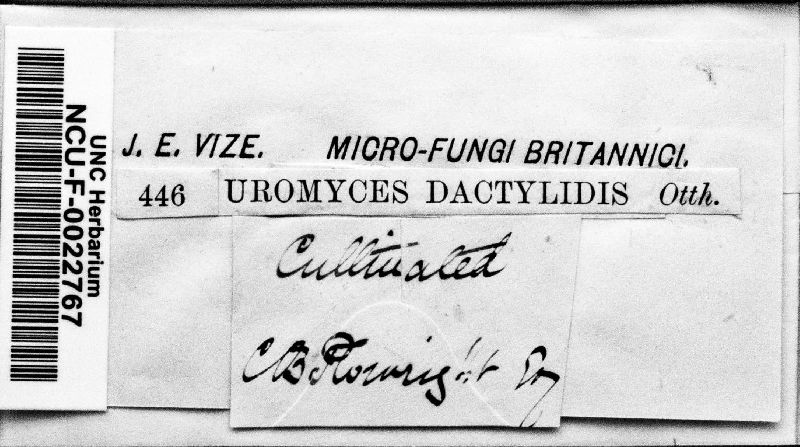 UNC Herbarium
NCU-F-0022767
J. E. VIZE. MICRO-FUNGI BRITANNICI.
446 UROMYCES DACTYLIDIS Otth.
Cultivated
C B Plowright Esq